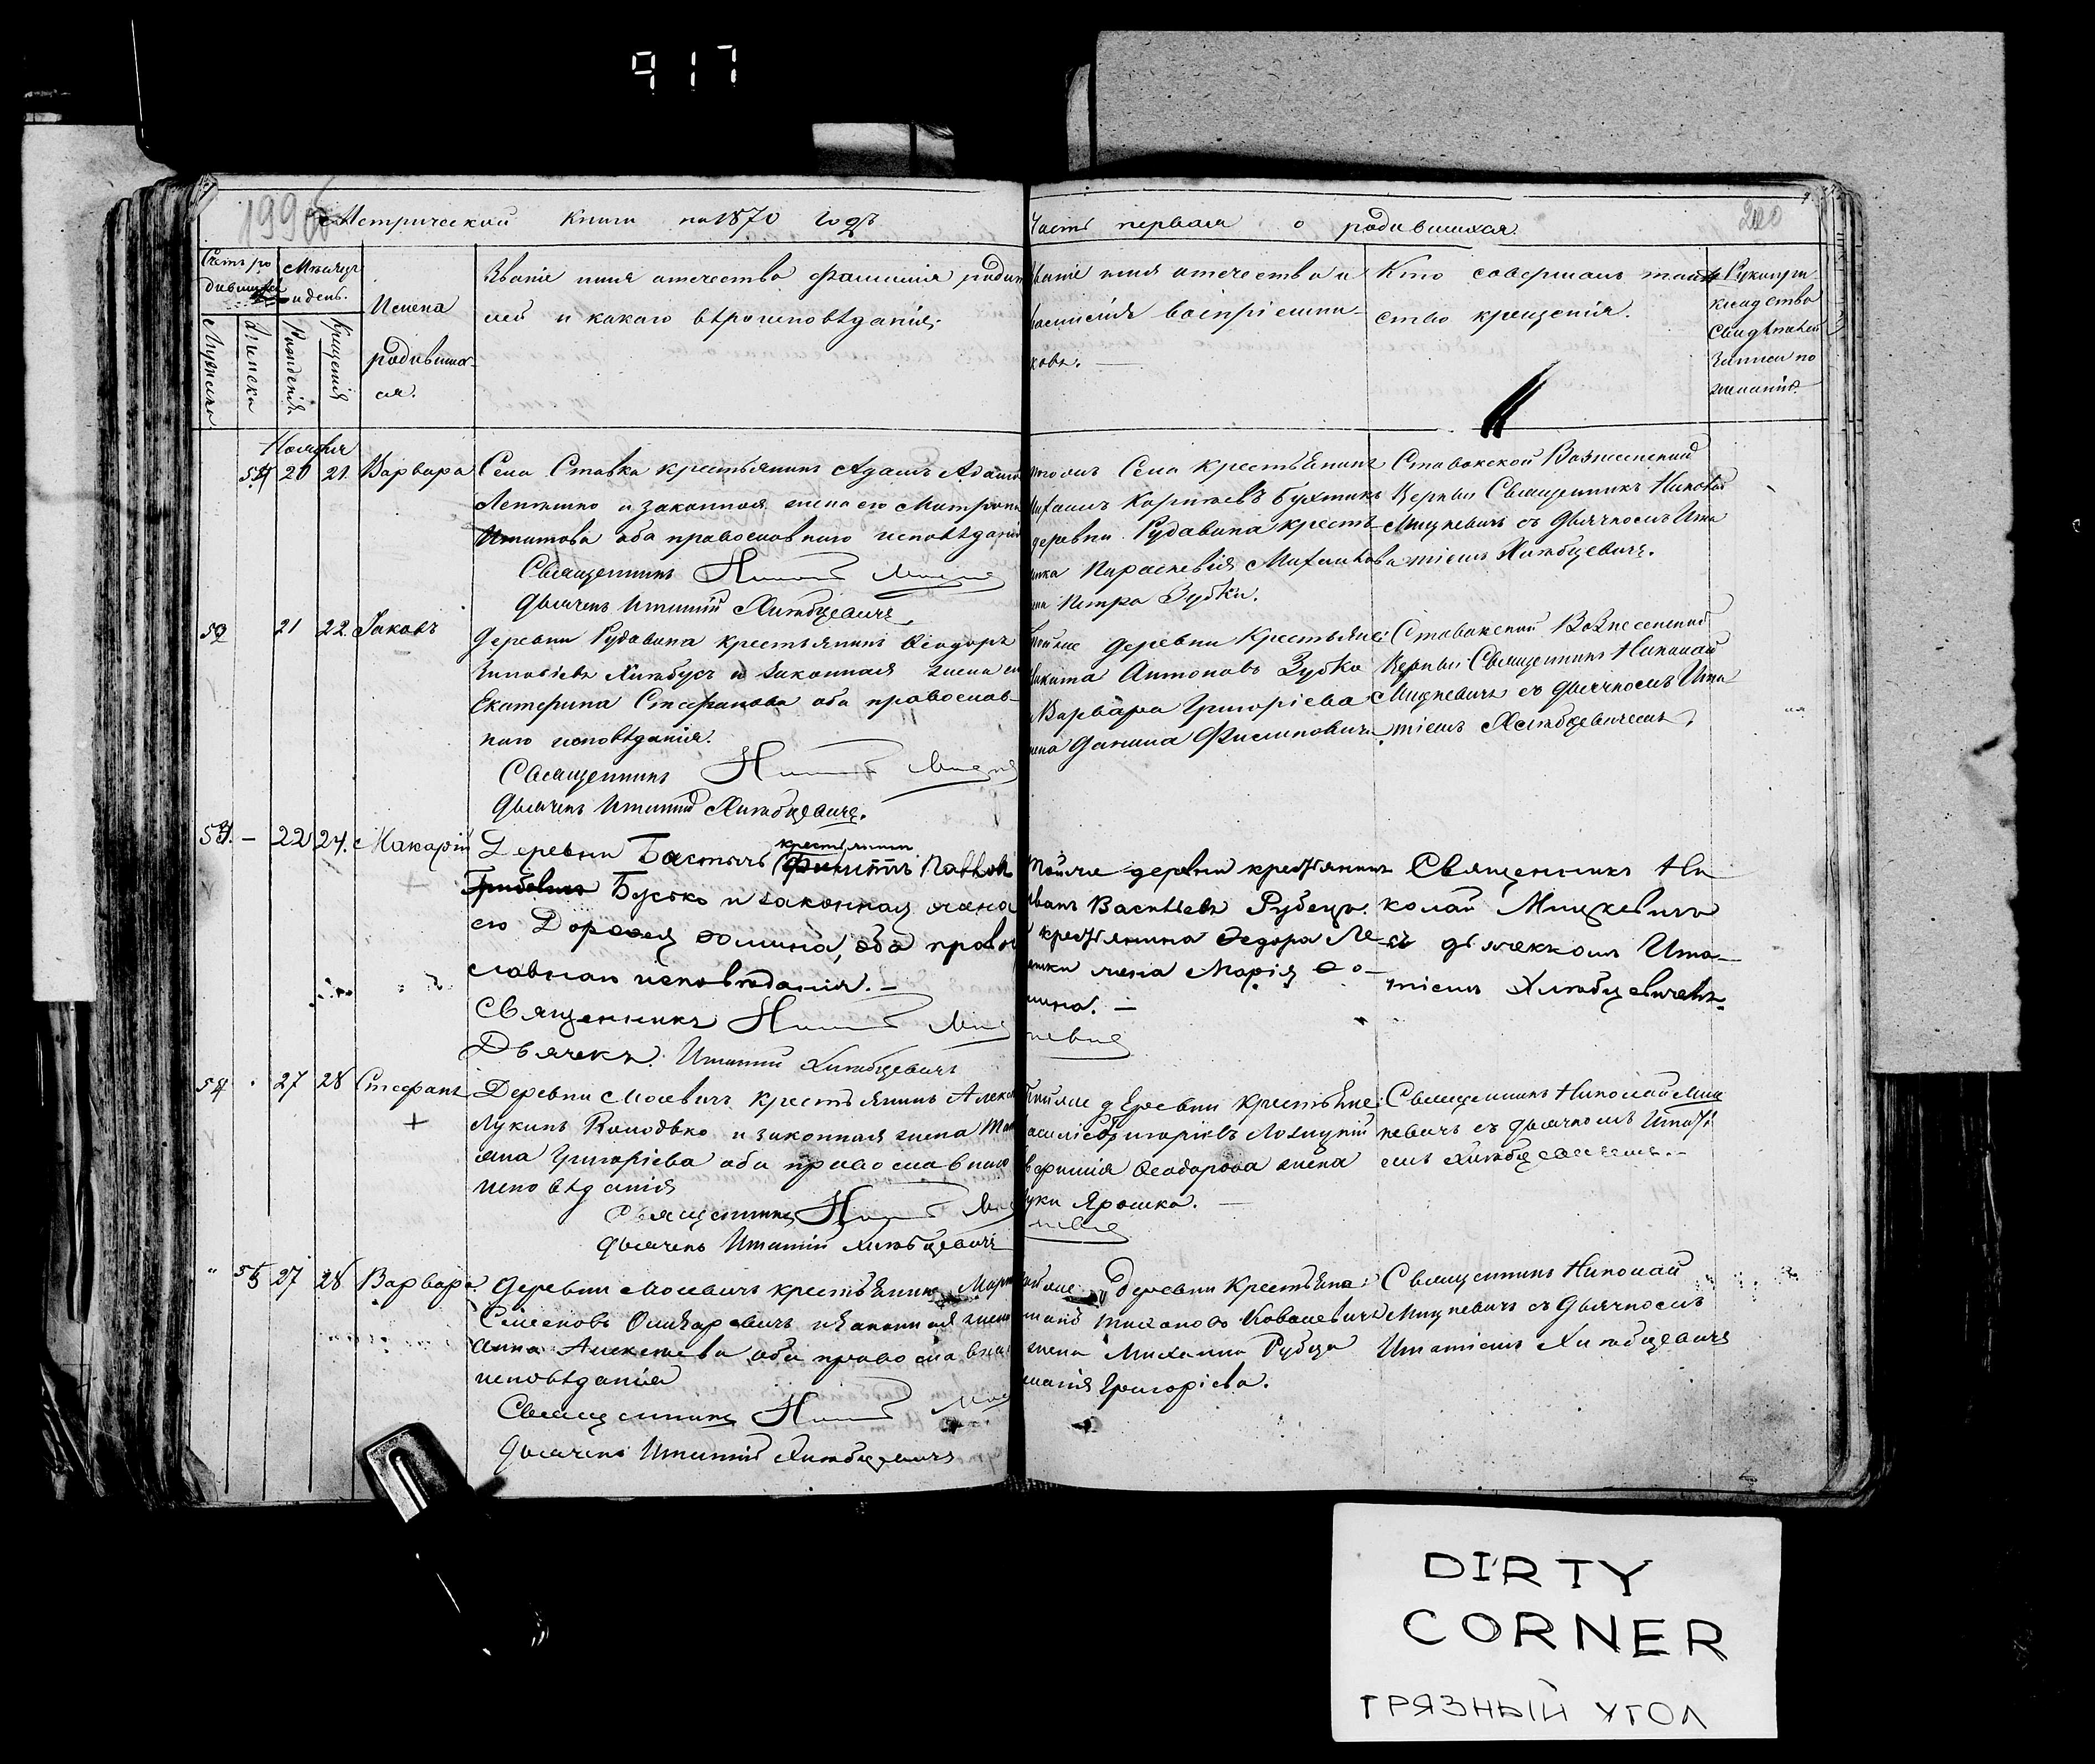 917
199об
Метрической книги на 1870 годъ
Часть первая о родившихся.
200
Счетъ ро
дившихся
Мѣсяцъ
и день.
Мужеска
Женска
Рожденія
Крещенія
Имена
родивших
ся.
Званіе имя отечество фамилія родит
лей и какого вѣроисповѣданія.
Званіе имя отечество и
фамилія воспріемни-
ковъ. —
Кто совершалъ таин
ство крещенія.
Рукопри
кладство
свидѣтелей
записи по
желанію
Ноября
54 20 21. Варвара
Села Ставка крестьянинъ Адамъ Адамо
и законная жена его Матрона
Игнатова оба православнаго исповѣданія
Священникъ
Дьячекъ Игнатій Хлѣбцевичъ
тогожъ Села крестьянинъ
Бухтикъ
деревни Рудавина кресть
янка Параскевія Михайлова
жена Петра Зубки.
Ставокской Вознесенской
Церкви Священникъ Николай
Мицкевичъ съ дьячкомъ Игна
тіемъ Хлѣбцевичъ.
52 21 22. Іаковъ
Деревни Рудавина крестьянинъ Ѳеодоръ
Хлѣбусъ и законная жена его
Екатерина Стефанова оба православ-
наго исповѣданія.
Священникъ
Дьячекъ Игнатій Хлѣбцевичъ.
Тойже деревни Крестьяне
Никита Антоновъ Зубко
Варвара Григоріева
жена Данила Филиповича
Ставокской Вознесенской
Церкви Священникъ Николай
Мицкевичъ съ дьячкомъ Игна
тіемъ Хлѣбцевичемъ.
53. — 22 24. Макарій
крестьянинъ
Деревни Бастычъ Павловъ
Бусько и законная жена
его Дороѳея Ѳомина, оба право
славнаго исповѣданія. —
Священникъ
Дьячекъ: Игнатій Хлѣбцевичъ
Тойже деревни крестьянинъ
Иванъ Васильевъ Рубецъ.
крестьянина Ѳедора Ле
жена Марія Ѳо-
мина. —
Священникъ Ни
колай Мицкевичъ
съ дьячкомъ Игна-
тіемъ Хлѣбцевичемъ.
54 27 28 Стефанъ
Деревни Мосевичъ крестьянинъ Алекс
Лукинъ Колодько и законная жена Тат
яна Григоріева оба православнаго
исповѣданія
Священникъ
Дьячекъ Игнатій Хлѣбцевичъ
Тойже деревни Крестьяне:
Василій Григоріевъ Лозицкій
Евфимія Ѳеодорова жена
Луки Ярошка. —
Священникъ Николай Миц
кевичъ съ дьячкомъ Игнаті
емъ Хлѣбцевичемъ. —
" 55 27 28 Варвара
Деревни Мосевичъ крестьянинъ Март
Семеновъ и законная жена
Анна Алексѣева оба православнаго
исповѣданія
Священникъ
Дьячекъ Игнатій Хлѣбцевичъ
Тойже деревни Крестьяне:
Ковалевичъ
жена Михаила Рубца
Григоріева.
Священникъ Николай
Мицкевичъ съ Дьячкомъ
Игнатіемъ Хлѣбцевичъ
DIRTY
CORNER
ГРЯЗНЫЙ УГОЛ